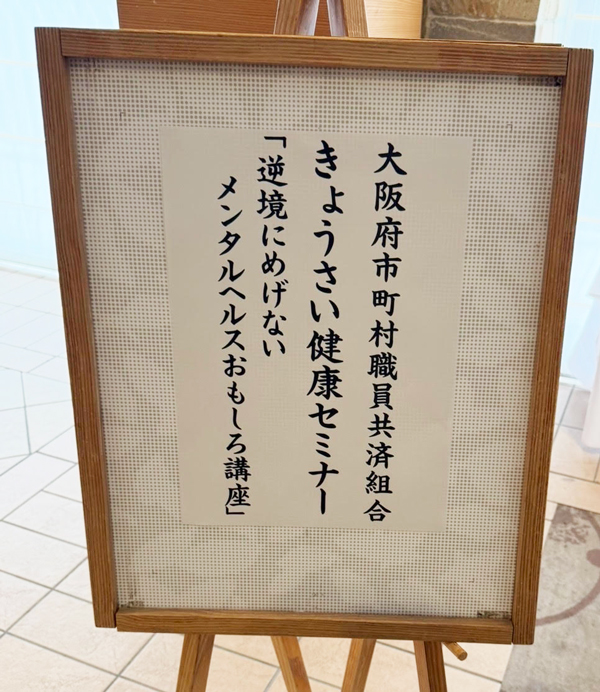 大阪府市町村職員共済組合
きょうさい健康セミナー
「逆境にめげない
メンタルヘルスおもしろ講座」